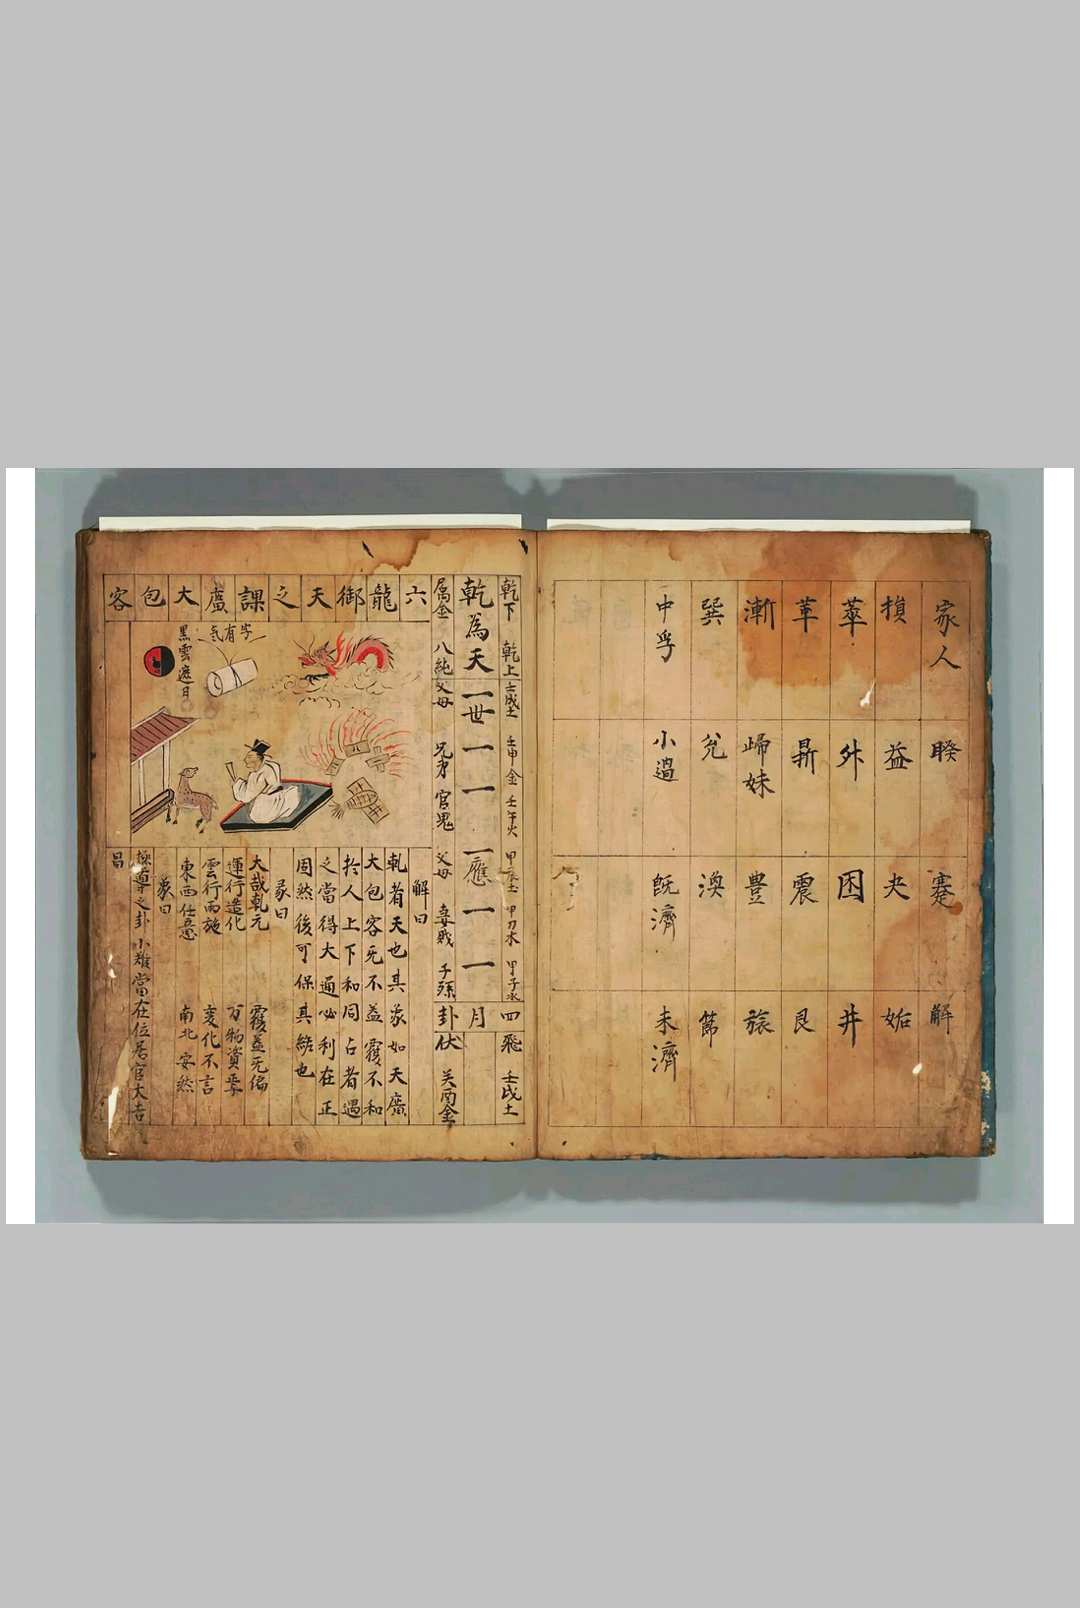 家人 睽 蹇 解
損 益 夬 姤
萃 升 困 井
革 鼎 震 艮
漸 歸妹 豐 旅
巽 兌 渙 節
中孚 小過 既濟 未濟
乾下 乾上 壬戌土 壬申金 壬午火 甲辰土 甲子水 四 飛 壬戌土
乾為天 一世 一 一 一應 一 一 月
属金 八純 父母 兄弟 官鬼 父母 妻戝 子孫 卦 伏
六龍御天之課廣大包容
字有気
黒雲遮月
解曰
乹者天也其家如天廣
大包容旡不益覆不和
扵人上下和同占者遇
之當得大通必利在正
固然後可保其終也
彖曰
大哉乹元 覆盖旡偏
運行造化 万物資焉
雲行雨施 変化不言
東西仕意 南北安然
象曰
之卦 小難當在位居官大吉
昌